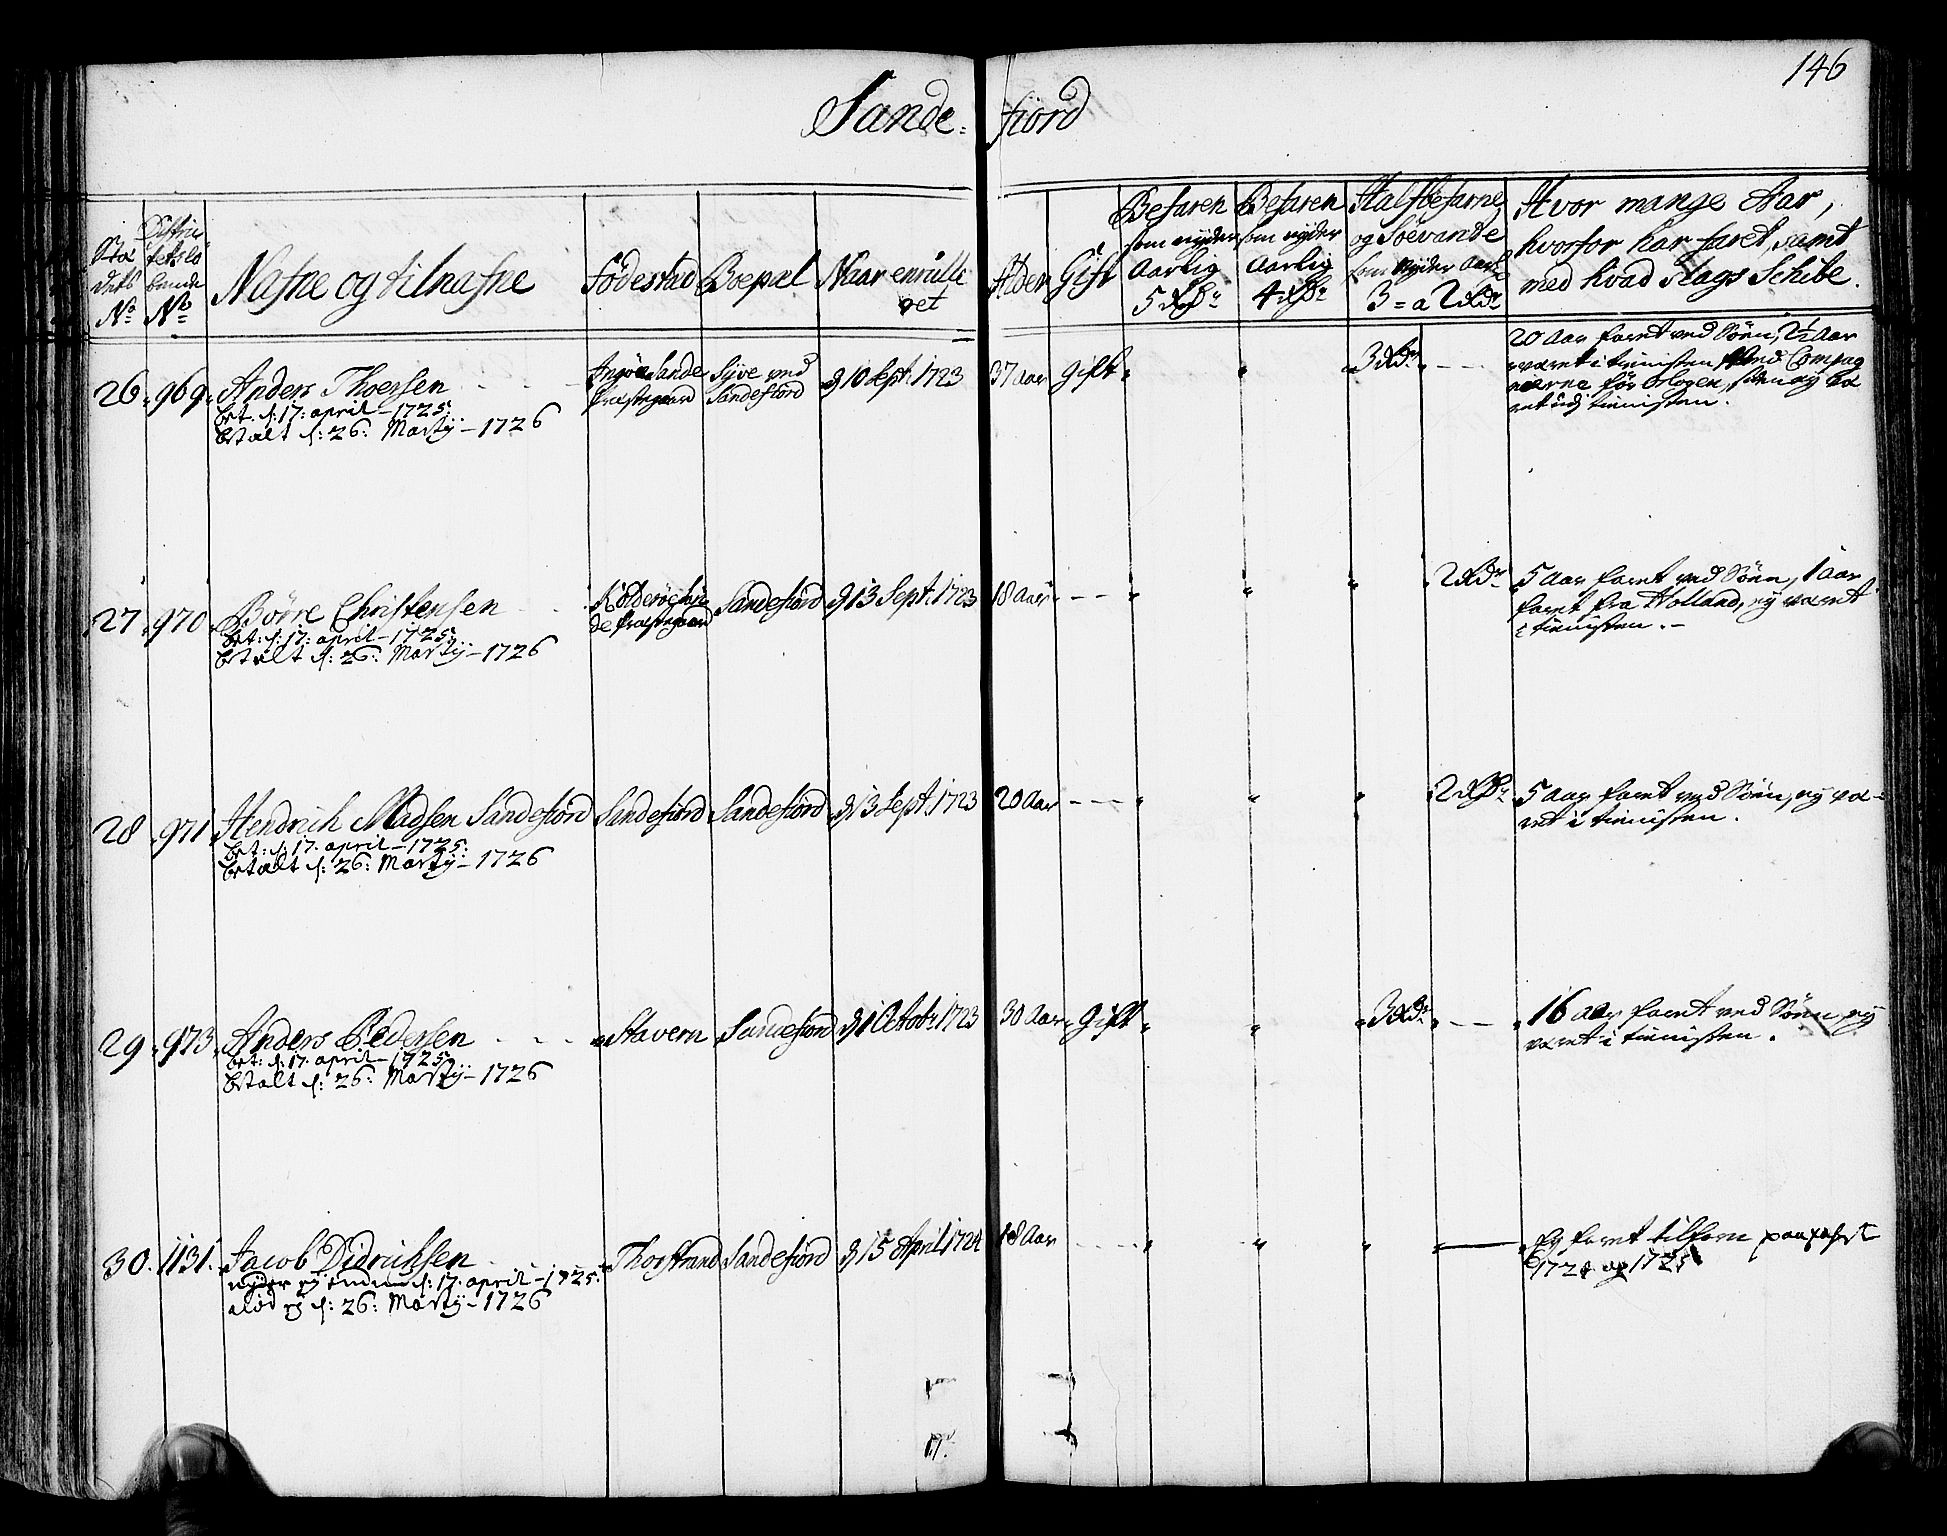 146
Sande= fiord
Sta
dets
No
Districtets lø
bende
No
Nafne og tilnafne
födestad
Boepæl
Naar enrulle
ret
Alder
Gift
Befaren
som nyder
Aarlig
5 Rdr
Befaren
som nyder
Aarlig
4 Rdr
Halfbefarne
og Söevande
som Nyder Aarl
3 = a 2 Rdr
Hvor mange Aar,
hvorfor har faret, samt
med hvad Slags Schibe.
26. 969. Anders Thoersen
bet: d: 17: april - 1725:
betalt d: 26: Martij - 1726
præstegaard
Syve ved
Sandefiord
d 10 Sept. 1723
37 aar
gift
3 Rdr
20 Aar faret ved Söen, 2½ Aar
været i tienisten
27. 970. Börre Christensen
bet: d: 17: april - 1725:
betalt d: 26: Martij - 1726
de præstegaard
Sandefiord
d 13 Sept. 1723
18 Aar
2 Rdr
5 Aar faret ved Söen, 1 aar
faret fra Holland, ey været
i tienisten.
28. 971. Hendrich Madsen Sandefiord
bet: d: 17: april - 1725:
betalt d: 26: Martij - 1726
Sandefiord
Sandefiord
d 13 Sept. 1723
20 Aar
2 Rdr
5 Aar faret ved Söen, ey væ-
ret i tienisten.
29. 973. Anders Pedersen
bet: d: 17: april - 1725:
betalt d: 26: Martij - 1726
Stavern
Sandefiord
d 1 Octobr 1723
30 Aar
Gift
3 Rdr
16 Aar faret ved Söen ey
været i tienisten.
30. 1131. Jacob Didrichsen
nyder ey d: 17: april - 1725:
ey d: 26: Martij - 1726
Thorstrand
Sandefiord
d 15 April 1724
18 Aar
Ey faret tilforn paa fahrt
1724 og 1725